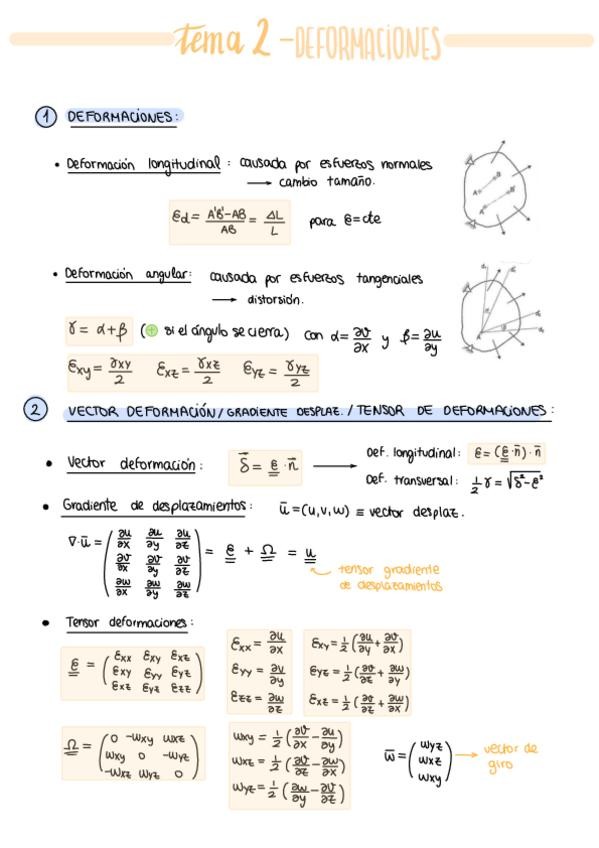 tema 2 - DEFORMACIONES
1 DEFORMACIONES:
• Deformación longitudinal: causada por esfuerzos normales
→ cambio tamaño.
εd = A'B'-AB / AB = ΔL / L para ε=cte
• Deformación angular: causada por esfuerzos tangenciales
→ distorsión.
γ = α+β (⊕ si el ángulo se cierra) con α = ∂v/∂x y β = ∂u/∂y
εxy = γxy/2 εxz = γxz/2 εyz = γyz/2
2 VECTOR DEFORMACIÓN / GRADIENTE DESPLAZ. / TENSOR DE DEFORMACIONES:
• Vector deformación: δ⃗ = ε · n̄ → Def. longitudinal: ε = (ε · n̄) · n̄
Def. transversal: ½ γ = √(δ²-ε²)
• Gradiente de desplazamientos: ū = (u,v,w) ≡ vector desplaz.
∇·ū = ( ∂u/∂x ∂u/∂y ∂u/∂z
∂v/∂x ∂v/∂y ∂v/∂z
∂w/∂x ∂w/∂y ∂w/∂z ) = ε + Ω = u
tensor gradiente
de desplazamientos
• Tensor deformaciones:
ε = ( εxx εxy εxz
εxy εyy εyz
εxz εyz εzz )
εxx = ∂u/∂x
εyy = ∂v/∂y
εzz = ∂w/∂z
εxy = ½ (∂u/∂y + ∂v/∂x)
εyz = ½ (∂v/∂z + ∂w/∂y)
εxz = ½ (∂u/∂z + ∂w/∂x)
Ω = ( 0 -wxy wxz
wxy 0 -wyz
-wxz wyz 0 )
wxy = ½ (∂v/∂x - ∂u/∂y)
wxz = ½ (∂u/∂z - ∂w/∂x)
wyz = ½ (∂w/∂y - ∂v/∂z)
w̄ = ( wyz
wxz
wxy ) → vector de
giro